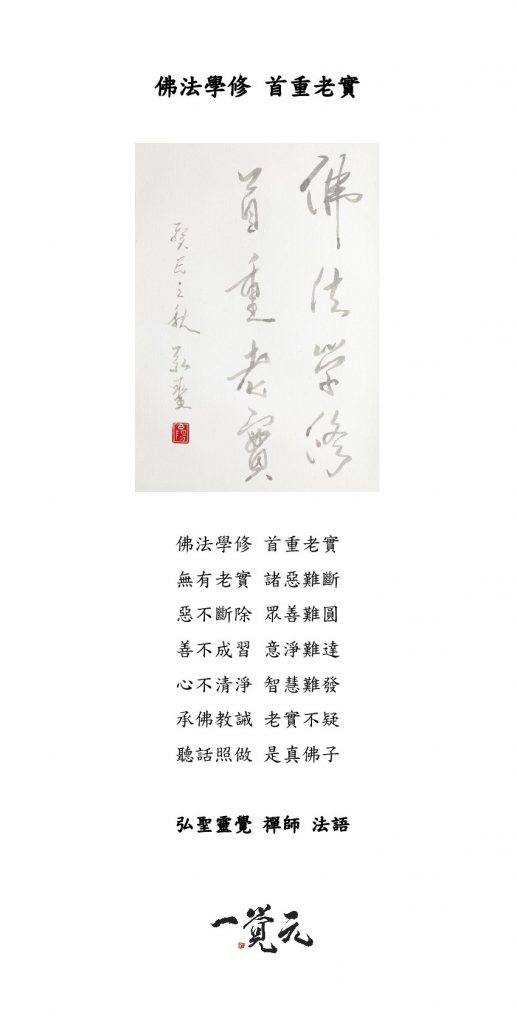 佛法學修 首重老實
佛法學修
首重老實
癸巳之秋
佛法學修 首重老實
無有老實 諸惡難斷
惡不斷除 眾善難圓
善不成習 意淨難達
心不清淨 智慧難發
承佛教誡 老實不疑
聽話照做 是真佛子
弘聖靈覺 禪師 法語
一覺元